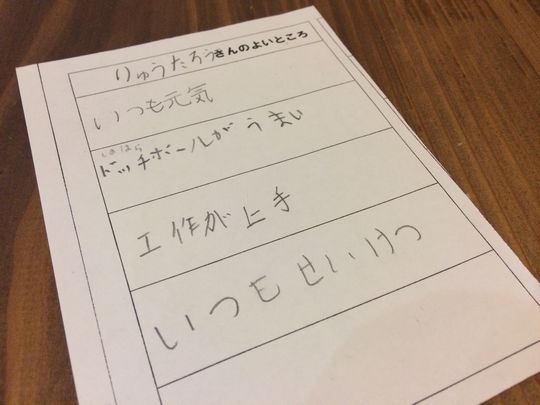 りゅうたろうさんのよいところ
いつも元気
しのはら
ドッチボールがうまい
工作が上手
いつもせいけつ